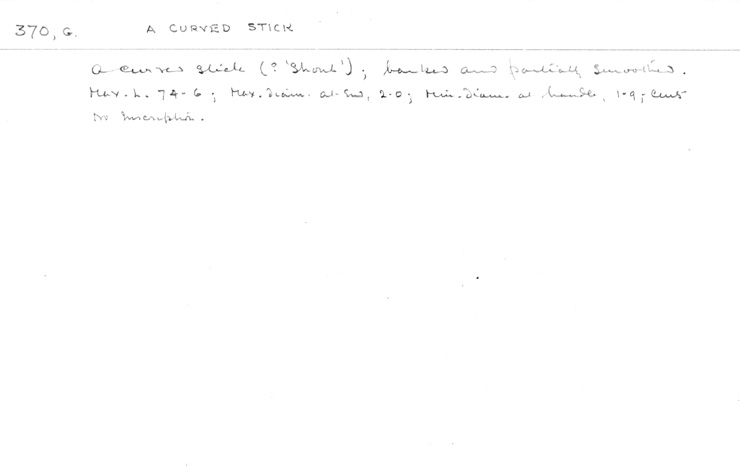 370, G. A CURVED STICK
A curved stick (? 'Shout'); barked and partially smoothed.
Max. L. 74.6; Max. diam. at end, 2.0; Min. Diam. at handle, 1.9; cms
No Inscription.